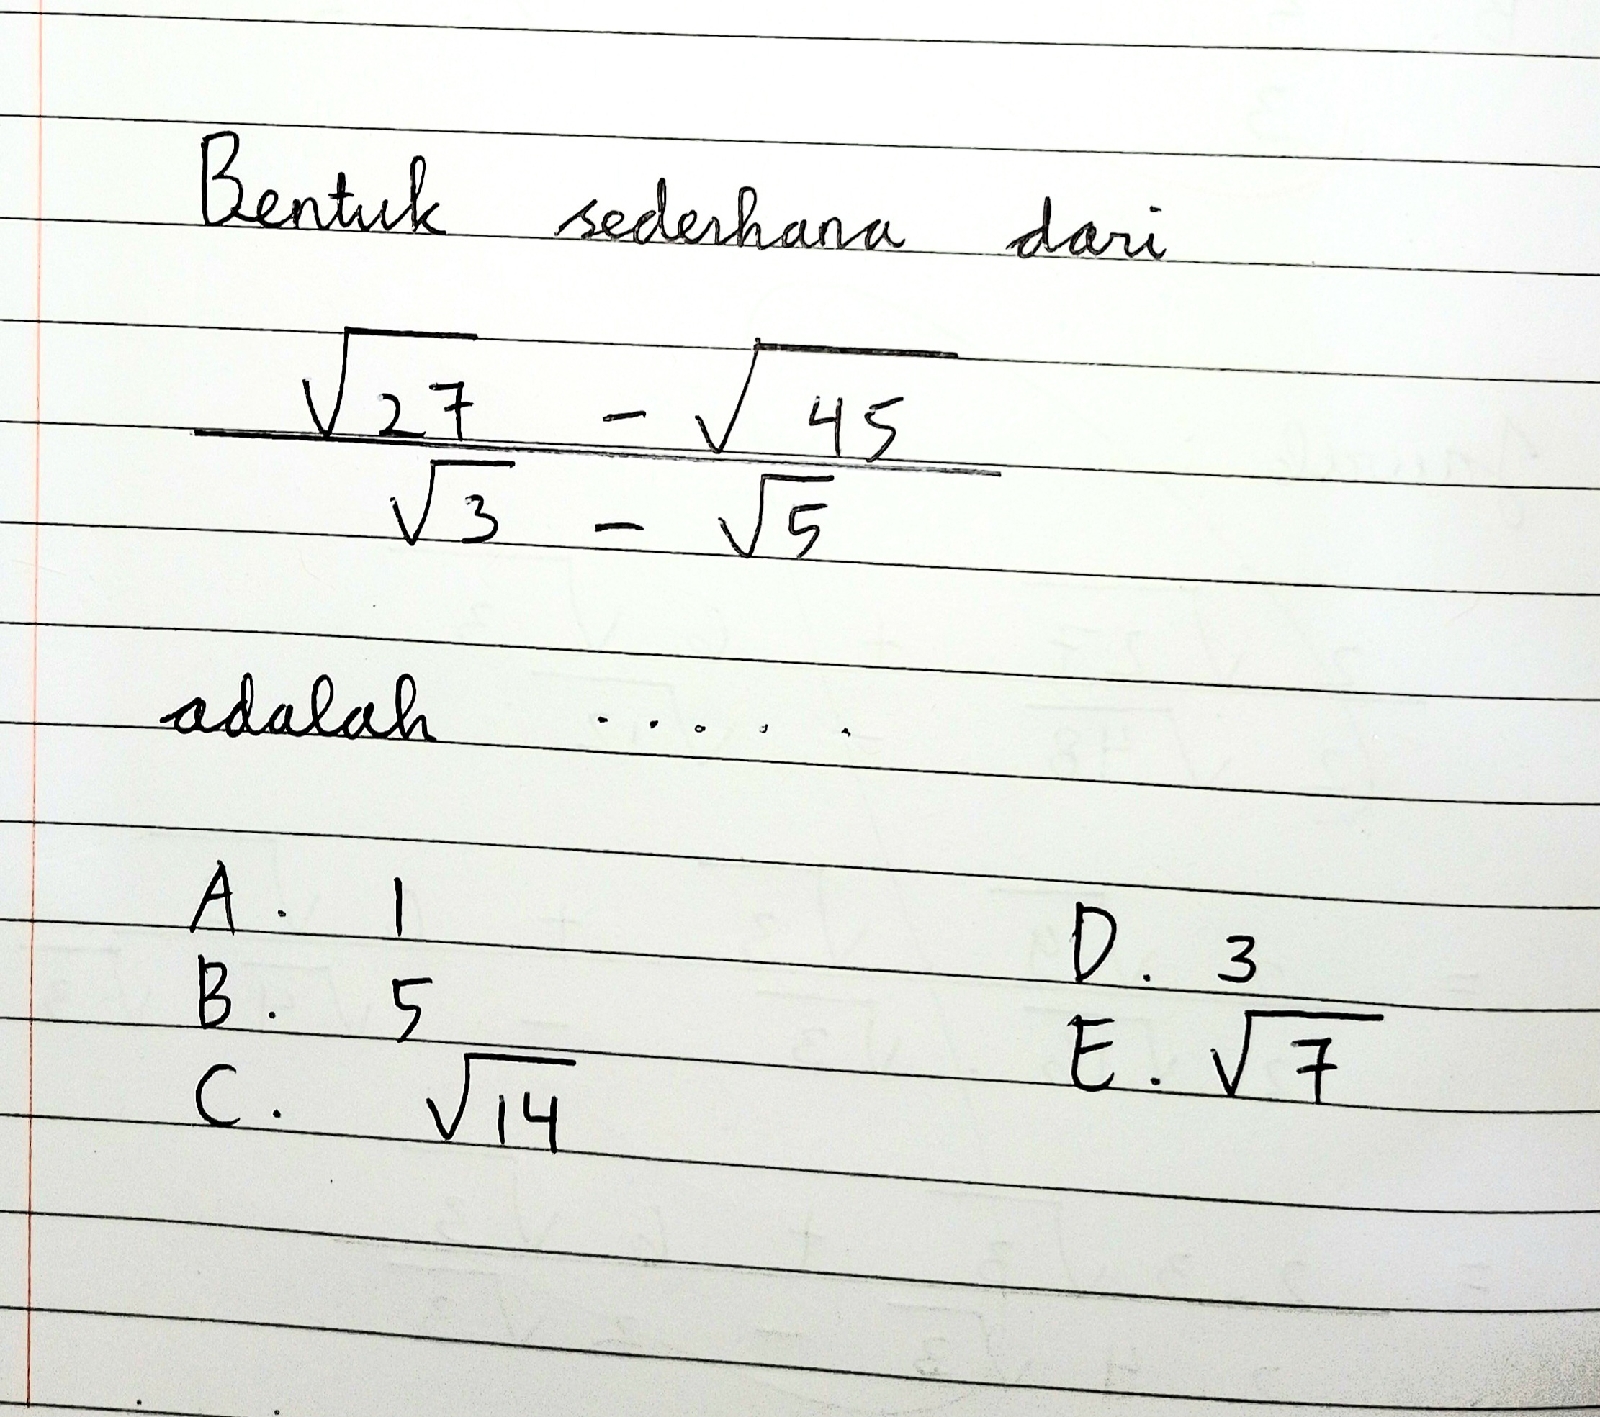 Bentuk sederhana dari
√27 - √45
√3 - √5
adalah .....
A. 1
B. 5
C. √14
D. 3
E. √7